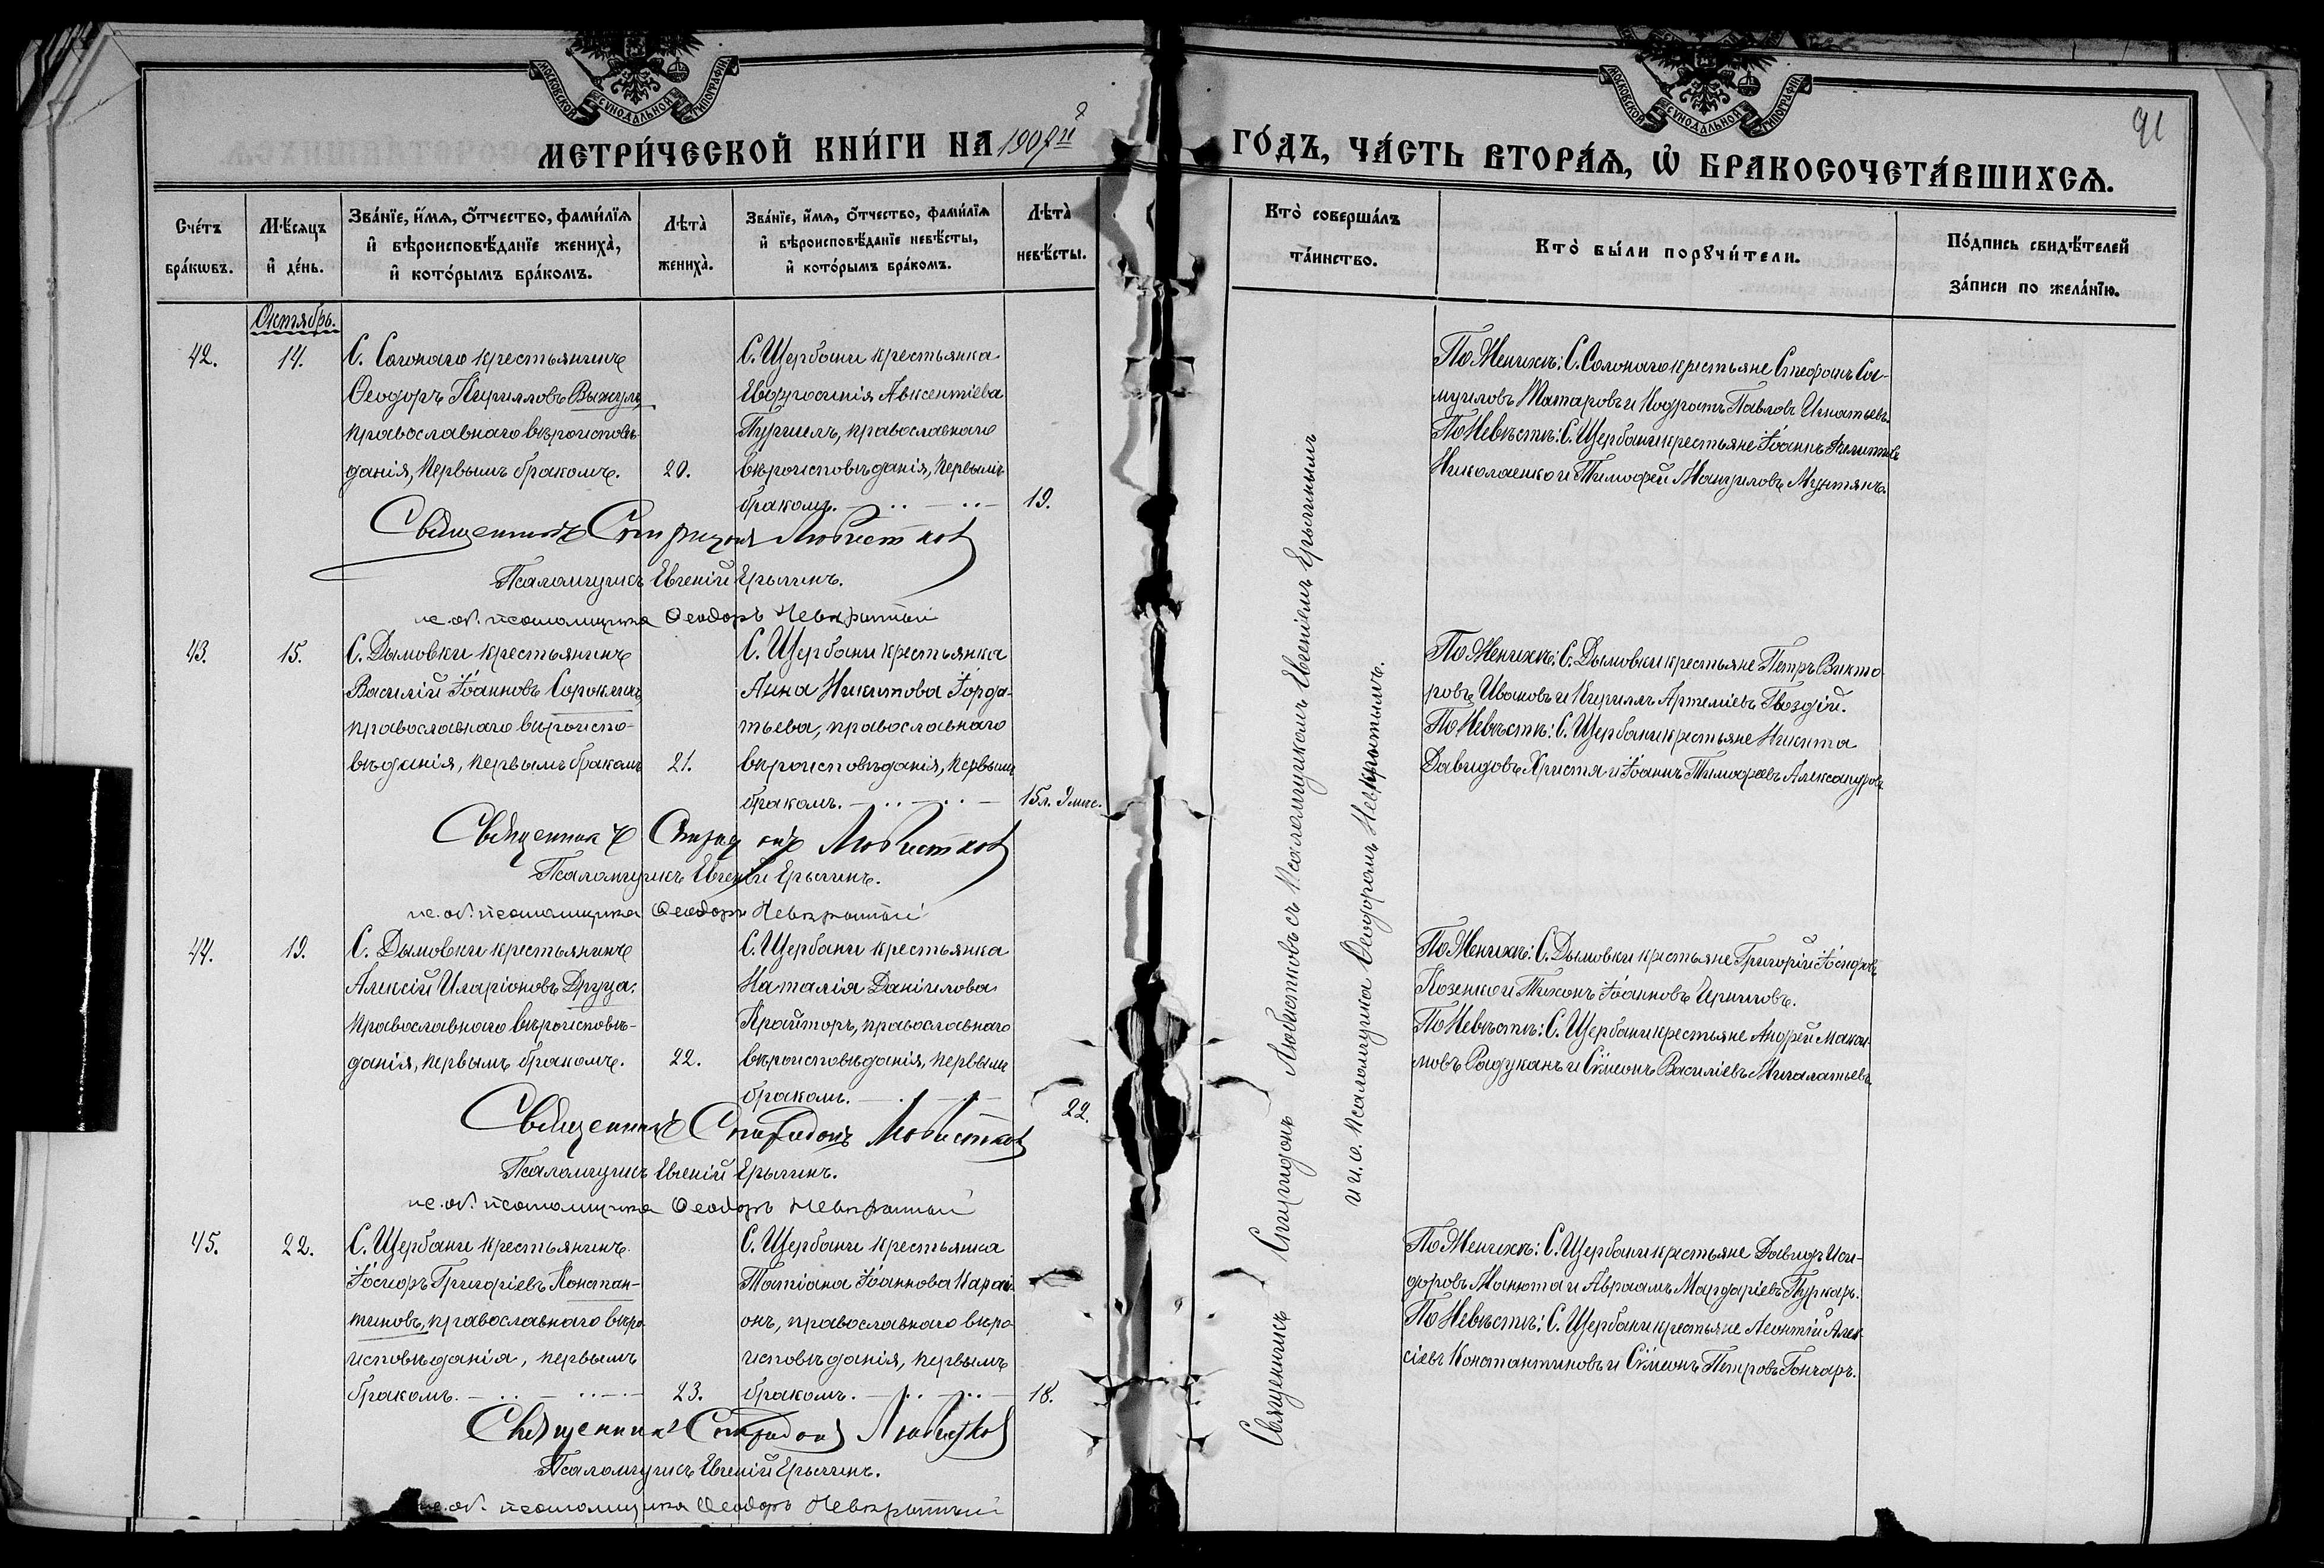 МОСКОВСКОЙ СѴНОДАЛЬНОЙ ТИПОГРАФІИ
МОСКОВСКОЙ СѴНОДАЛЬНОЙ ТИПОГРАФІИ
91
МЕТРИ́ЧЕСКОЙ КНИ́ГИ НА 1907й
ГО́ДЪ, ЧА́СТЬ ВТОРА́Ѧ, Ѡ БРАКОСОЧЕТА́ВШИХСѦ.
Сче́тъ бра́кѡвъ.
Мѣ́сяцъ и де́нь.
Зва́нїе, и́мѧ, о́тчество, фами́лїѧ
и вѣроисповѣ́данїе жениха̀,
и кото́рымъ бра́комъ.
Лѣта̀ жениха̀.
Зва́нїе, и́мѧ, о́тчество, фами́лїѧ
и вѣроисповѣ́данїе невѣ́сты,
и кото́рымъ бра́комъ.
Лѣта̀ невѣ́сты.
Кто̀ соверша́лъ
та́инство.
Кто̀ бы́ли порꙋчи́тели.
По́дпись свидѣ́телей
за́писи по жела́нїю.
Октябрь.
42.
14.
С. Солонаго крестьянинъ
Ѳеодоръ Кирилловъ Выжул
православнаго вѣроисповѣ-
данія, первымъ бракомъ.
20.
С. Щербани крестьянка
Евфросинія Авксентіева
православнаго
вѣроисповѣданія, первымъ
бракомъ.
19.
По Женихѣ: С. Солонаго крестьяне Стефанъ Са-
муиловъ Татаровъ и Кодратъ Павловъ Игнатьевъ.
По Невѣстѣ: С. Щербани крестьяне Іоаннъ
Николаенко и Тимофей Мануиловъ Мунтянъ.
Священникъ Спиридонъ Любистковъ
Псаломщикъ Евгеній Ерыгинъ.
и.об. псаломщика Ѳеодоръ Невкрытый
43.
15.
С. Дымовки крестьянинъ
Василій Іоанновъ Сорокманъ
православнаго вѣроиспо-
вѣданія, первымъ бракомъ
21.
С. Щербани крестьянка
Анна Никитова Іорда-
тьева, православнаго
вѣроисповѣданія, первымъ
бракомъ.
15л. 9 мѣс.
По Женихѣ: С. Дымовки крестьяне Петръ Викто-
ровъ Ивановъ и Кириллъ Артеміевъ Гвоздій.
По Невѣстѣ: С. Щербани крестьяне Никита
Давидовъ Христя и Іоаннъ Тимофеевъ Александровъ
Священникъ Спиридонъ Любистковъ
Псаломщикъ Евгеній Ерыгинъ.
и.об. псаломщика Ѳеодоръ Невкрытый
44.
19.
С. Дымовки крестьянинъ
Алексій Иларіоновъ Друца.
православнаго вѣроисповѣ-
данія, первымъ бракомъ.
22.
С. Щербани крестьянка
Наталія Даніилова
Крайторъ, православнаго
вѣроисповѣданія, первымъ
бракомъ.
22.
По Женихѣ: С. Дымовки крестьяне Григорій Іосифовъ
Козенко и Тихонъ Іоанновъ
По Невѣстѣ: С. Щербани крестьяне Андрей Макси-
мовъ Радуканъ и Сѵмеонъ Василіевъ
Священникъ Спиридонъ Любистковъ
Псаломщикъ Евгеній Ерыгинъ.
и.об. псаломщика Ѳеодоръ Невкрытый
45.
22.
С. Щербани крестьянинъ
Іосифъ Григоріевъ Констан-
тиновъ, православнаго вѣро-
исповѣданія, первымъ
бракомъ.
23.
С. Щербани крестьянка
Татіана Іоаннова Караи-
онъ, православнаго вѣро-
исповѣданія, первымъ
бракомъ.
18.
По Женихѣ: С. Щербани крестьяне Давидъ Иси-
доровъ Манюта и Авраамъ Мардаріевъ Пуркаръ.
По Невѣстѣ: С. Щербани крестьяне Леонтій Алек-
сіевъ Константиновъ и Сѵмеонъ Петровъ Гончаръ.
Священникъ Спиридонъ Любистковъ
Псаломщикъ Евгеній Ерыгинъ.
и.об. псаломщика Ѳеодоръ Невкрытый
Священникъ Спиридонъ Любистковъ съ псаломщикомъ Евгеніемъ Ерыгинымъ
и и.о. псаломщика Ѳеодоромъ Невкрытымъ.